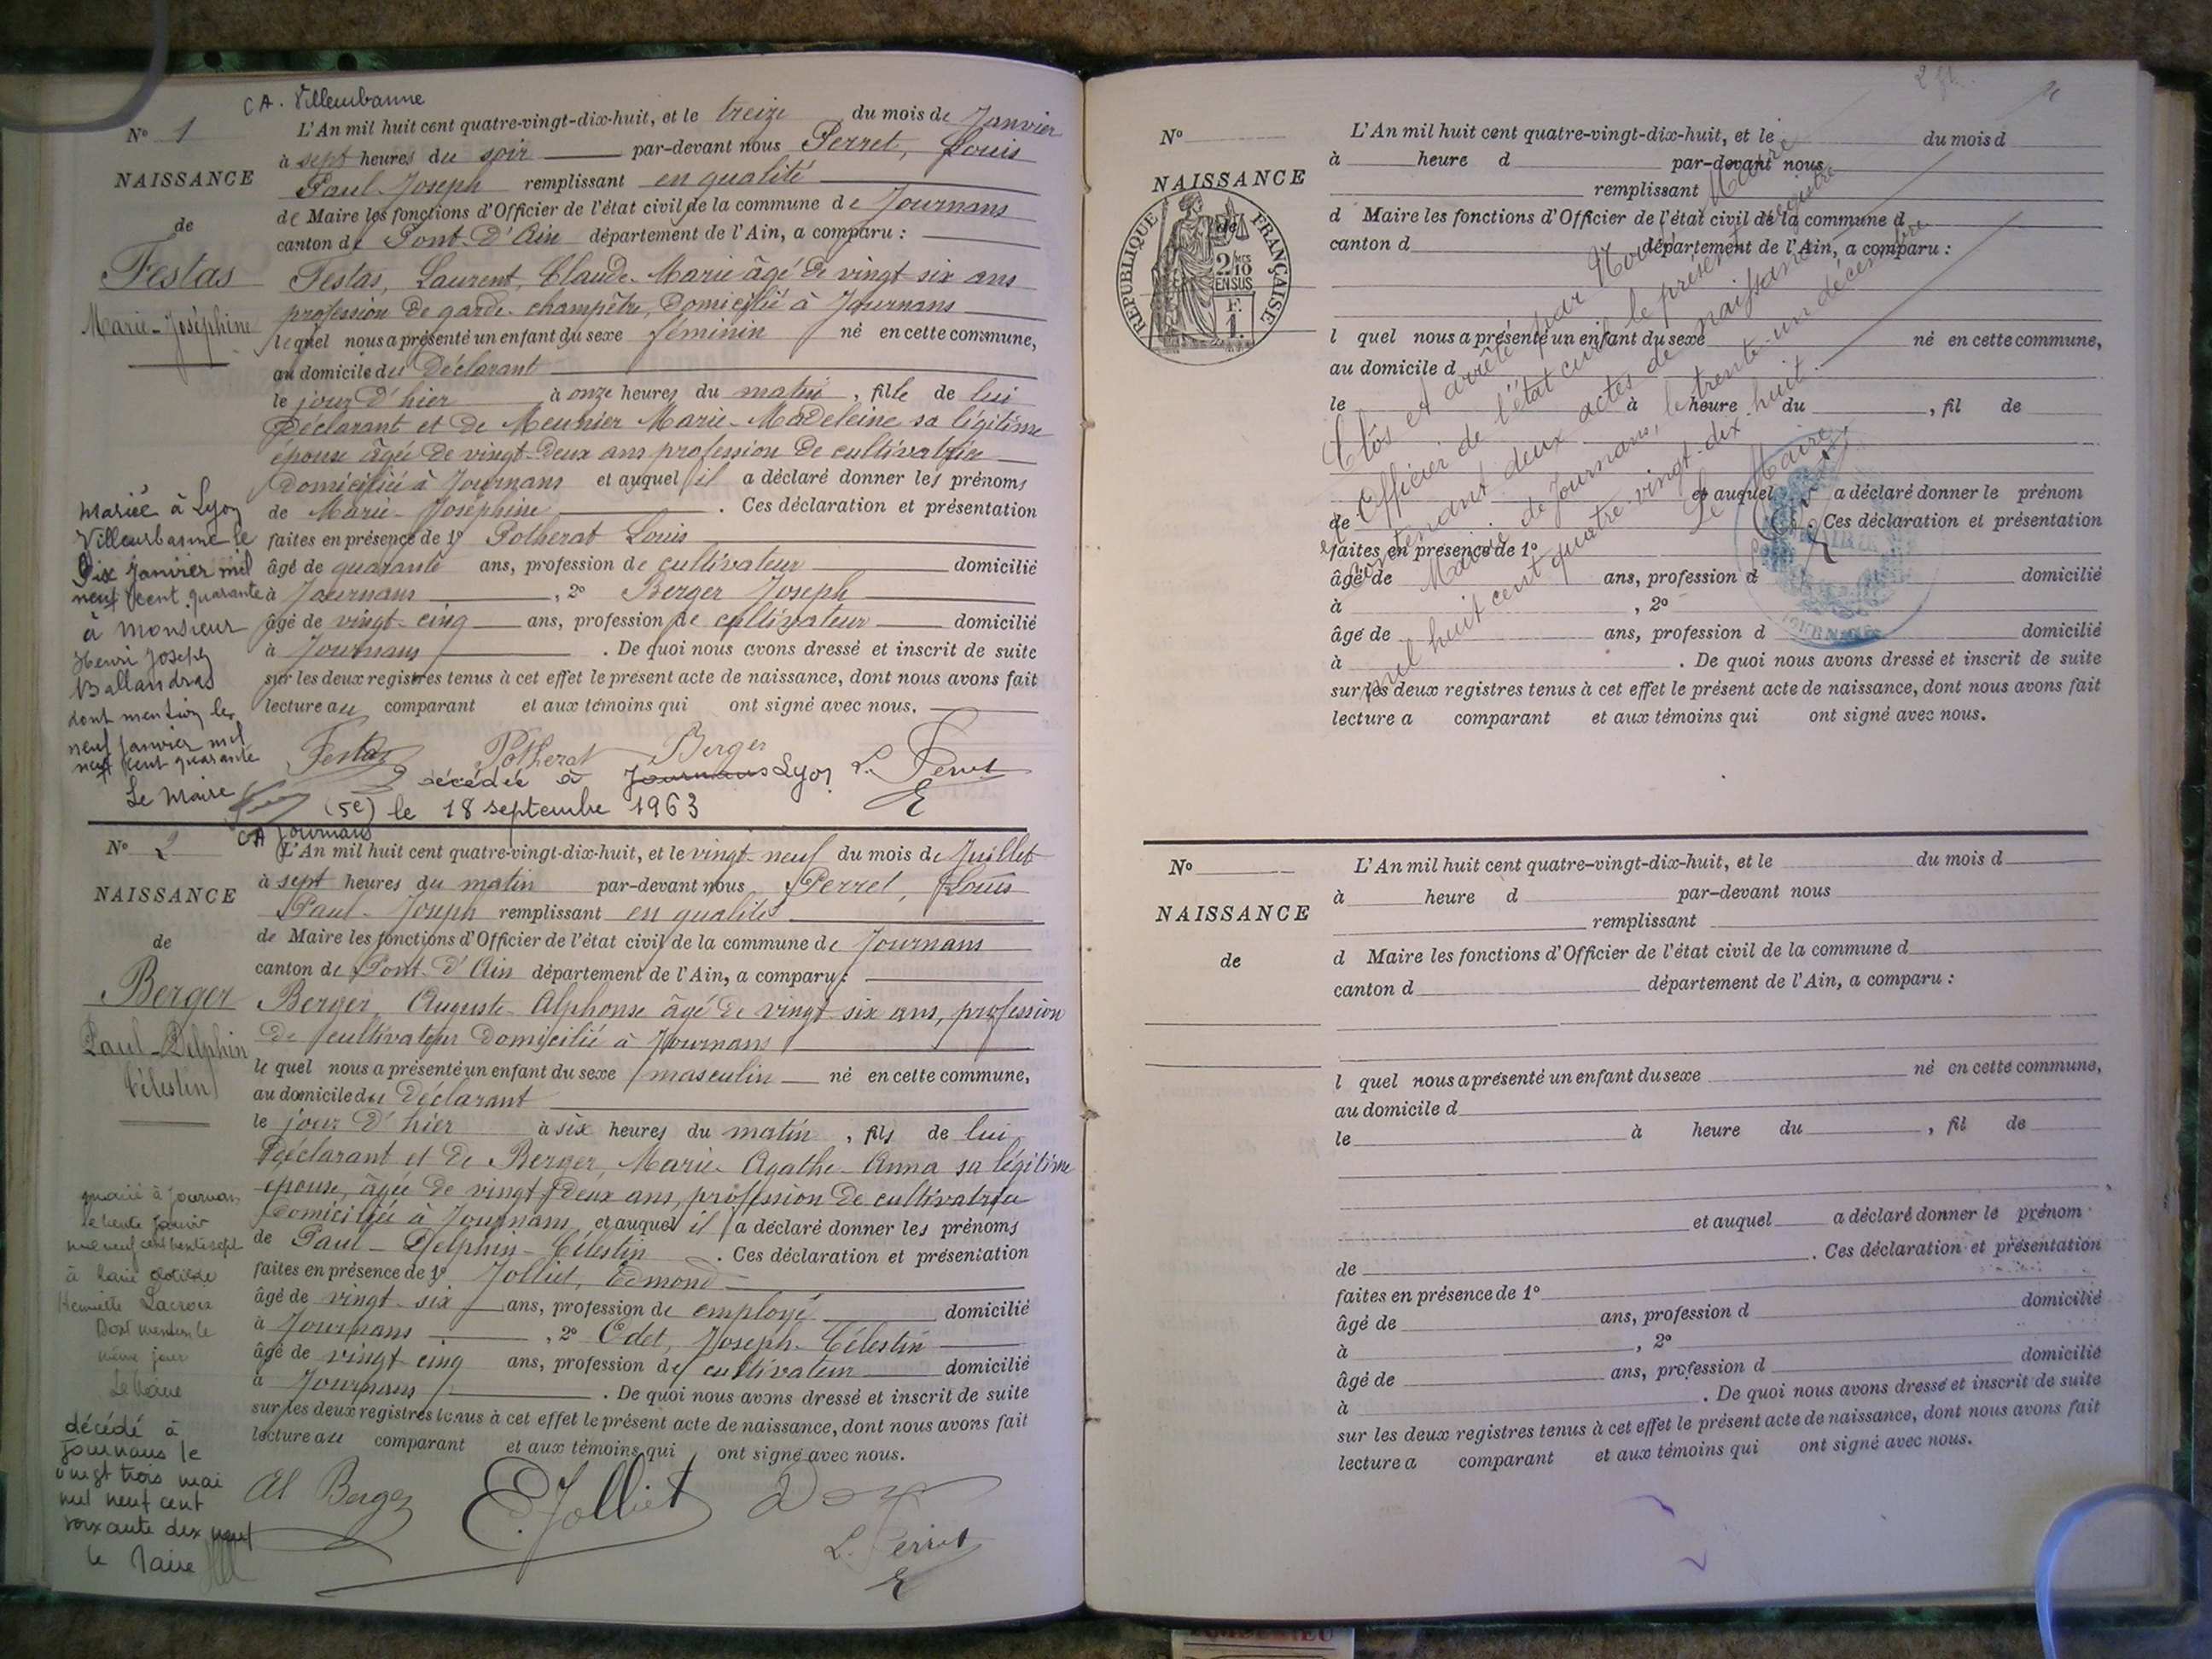 CA. Villeurbanne
N° 1
L'An mil huit cent quatre-vingt-dix-huit, et le treize du mois de Janvier
à sept heures du soir par-devant nous Perret, Louis
NAISSANCE
Paul-Joseph remplissant en qualité
de Maire les fonctions d'Officier de l'état civil de la commune de Journans
de
canton de Pont-d'Ain département de l'Ain, a comparu :
Festas
Festas, Laurent, Claude-Marie âgé de vingt six ans
profession de garde-champêtre, domicilié à Journans
Marie-Joséphine
lequel nous a présenté un enfant du sexe féminin né en cette commune,
au domicile du déclarant
le jour d'hier à onze heures du matin, fille de lui
déclarant et de Meunier Marie-Madeleine sa légitime
épouse âgée de vingt-deux ans profession de cultivatrice
domiciliée à Journans et auquel il a déclaré donner les prénoms
de Marie-Joséphine . Ces déclaration et présentation
faites en présence de 1° Potherat Louis
âgé de quarante ans, profession de cultivateur domicilié
à Journans , 2° Berger Joseph
âgé de vingt-cinq ans, profession de cultivateur domicilié
à Journans . De quoi nous avons dressé et inscrit de suite
sur les deux registres tenus à cet effet le présent acte de naissance, dont nous avons fait
lecture au comparant et aux témoins qui ont signé avec nous.
Mariée à Lyon
Villeurbanne le
Six Janvier mil
neuf cent quarante
à Monsieur
Henri Joseph
Ballandras
dont mention le
neuf Janvier mil
neuf cent quarante
Le Maire
Festas Potherat Berger L. Perret
décédée à Journans Lyon
(5e) le 18 septembre 1963
CA Journans
N° 2
L'An mil huit cent quatre-vingt-dix-huit, et le vingt-neuf du mois de Juillet
à sept heures du matin par-devant nous Perret, Louis
NAISSANCE
Paul-Joseph remplissant en qualité
de Maire les fonctions d'Officier de l'état civil de la commune de Journans
de
canton de Pont-d'Ain département de l'Ain, a comparu :
Berger
Berger, Auguste-Alphonse âgé de vingt-six ans, profession
de cultivateur domicilié à Journans
Paul-Delphin
Célestin
le quel nous a présenté un enfant du sexe masculin né en cette commune,
au domicile du déclarant
le jour d'hier à six heures du matin, fils de lui
déclarant et de Berger, Marie-Agathe-Anna sa légitime
épouse, âgée de vingt-deux ans, profession de cultivatrice
domiciliée à Journans et auquel il a déclaré donner les prénoms
de Paul-Delphin-Célestin . Ces déclaration et présentation
faites en présence de 1° Jolliet, Edmond
âgé de vingt-six ans, profession de employé domicilié
à Journans , 2° Odet, Joseph-Célestin
âgé de vingt-cinq ans, profession de cultivateur domicilié
à Journans . De quoi nous avons dressé et inscrit de suite
sur les deux registres tenus à cet effet le présent acte de naissance, dont nous avons fait
lecture au comparant et aux témoins qui ont signé avec nous.
marié à Journans
le trente Janvier
mil neuf cent trente sept
à Marie Clotilde
Henriette Lacroix
Dont mention le
même jour
Le Maire
décédé à
Journans le
vingt trois mai
mil neuf cent
soixante dix neuf
le Maire
Al Berger E. Jolliet L. Perret
N°
L'An mil huit cent quatre-vingt-dix-huit, et le du mois d
à heure d par-devant nous
NAISSANCE
remplissant
d Maire les fonctions d'Officier de l'état civil de la commune d
de
canton d département de l'Ain, a comparu :
REPUBLIQUE FRANÇAISE
2/10
EN SUS
F.
1.
l quel nous a présenté un enfant du sexe né en cette commune,
au domicile d
le à heure du , fil de
et auquel a déclaré donner le prénom
de . Ces déclaration et présentation
faites en présence de 1°
âgé de ans, profession d domicilié
à , 2°
âgé de ans, profession d domicilié
à . De quoi nous avons dressé et inscrit de suite
sur les deux registres tenus à cet effet le présent acte de naissance, dont nous avons fait
lecture a comparant et aux témoins qui ont signé avec nous.
Clos et arrêté par Nous, Maire
et Officier de l'état civil le présent registre
contenant deux actes de naissance
Mairie de Journans, le trente-un décembre
mil huit cent quatre-vingt-dix-huit.
Le Maire,
MAIRIE
JOURNANS
N°
L'An mil huit cent quatre-vingt-dix-huit, et le du mois d
à heure d par-devant nous
NAISSANCE
remplissant
de
d Maire les fonctions d'Officier de l'état civil de la commune d
canton d département de l'Ain, a comparu :
l quel nous a présenté un enfant du sexe né en cette commune,
au domicile d
le à heure du , fil de
et auquel a déclaré donner le prénom
de . Ces déclaration et présentation
faites en présence de 1°
âgé de ans, profession d domicilié
à , 2°
âgé de ans, profession d domicilié
à . De quoi nous avons dressé et inscrit de suite
sur les deux registres tenus à cet effet le présent acte de naissance, dont nous avons fait
lecture a comparant et aux témoins qui ont signé avec nous.